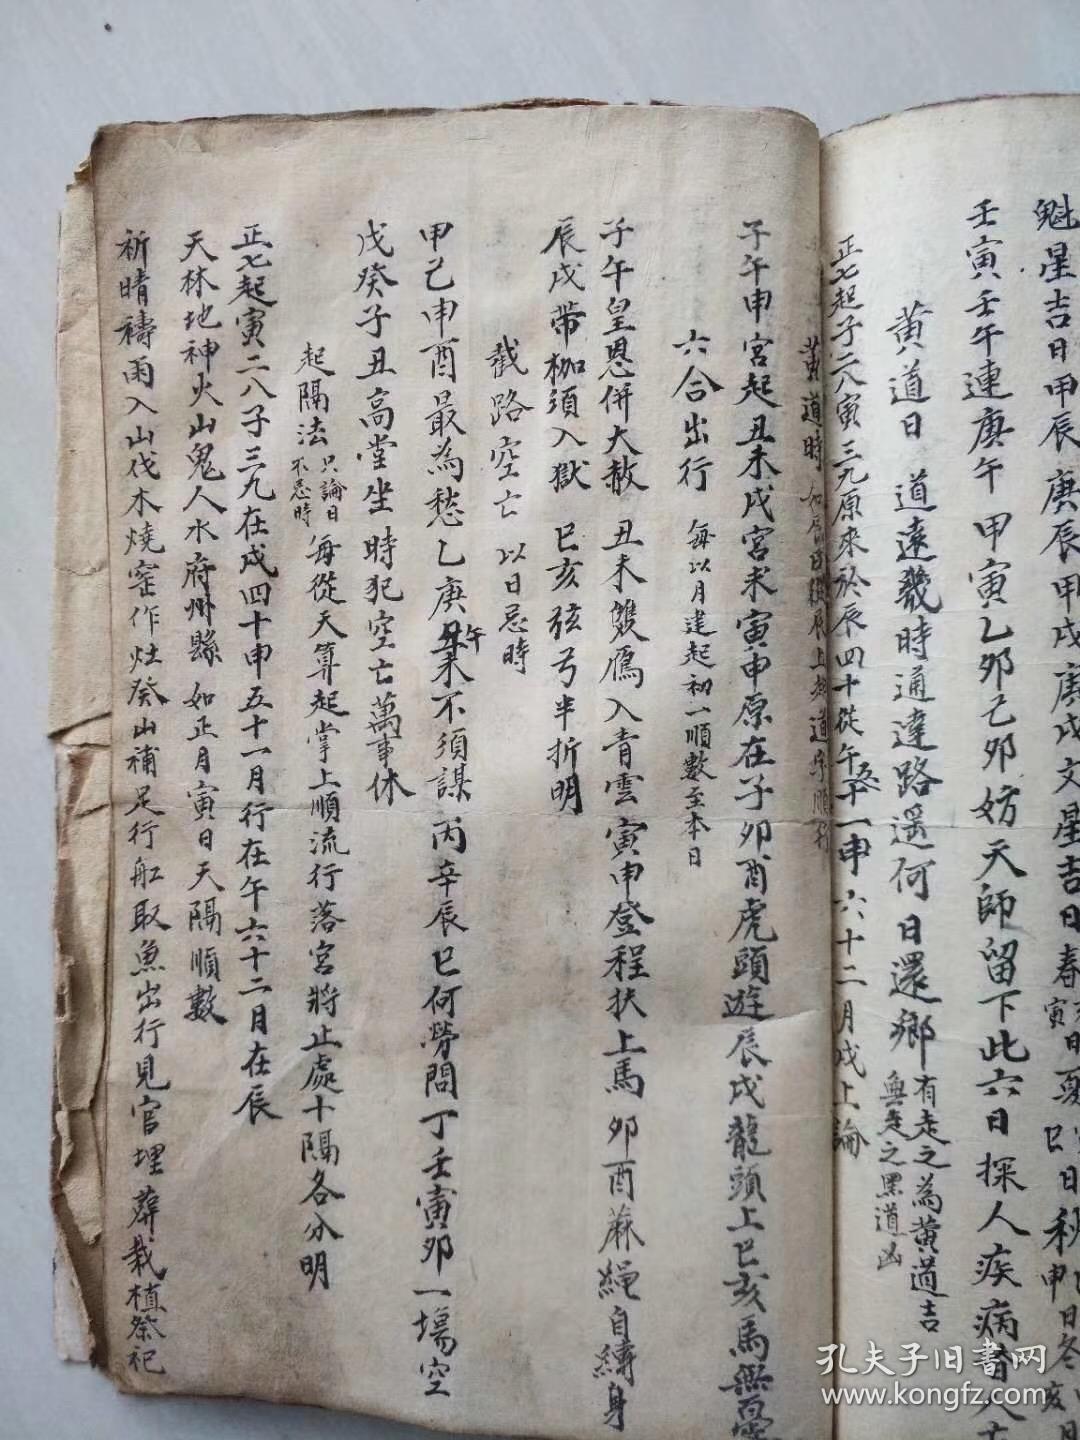 魁星吉日甲辰庚辰甲戌庚戌文星吉日春寅日夏巳日秋申日冬亥
壬寅壬午連庚午甲寅乙卯己卯妨天師留下此六日探人疾病者人
黄道日 道遠幾時通達路遥何日還鄉 有走之為黄道吉
無走之黑道凶
正七起子二八寅三九原來於辰四十從午五十一申六十二月戌上論
黄道時 如辰日從辰上起道字順行
子午申宮起丑未戌宮求寅申原在子卯酉虎頭遊辰戌龍頭上巳亥馬無憂
六合出行 每以月建起初一順數至本日
子午皇恩併大赦丑未雙鴈入青雲寅申登程扶上馬卯酉蔴繩自縛身
辰戌帶枷須入獄巳亥弦弓半折明
截路空亡 以日忌時
甲己申酉最為愁乙庚午未不須謀丙辛辰巳何勞問丁壬寅卯一塲空
戊癸子丑高堂坐時犯空亡萬事休
起隔法 只論日
不忌時 每從天算起掌上順流行落宮將止處十隔各分明
正七起寅二八子三九在戌四十申五十一月行在午六十二月在辰
天林地神火山鬼人水府州縣 如正月寅日天隔順數
祈晴禱雨入山伐木燒窑作灶癸山補足行舡取魚出行見官埋葬栽植祭祀
孔夫子旧書网
www.kongfz.com